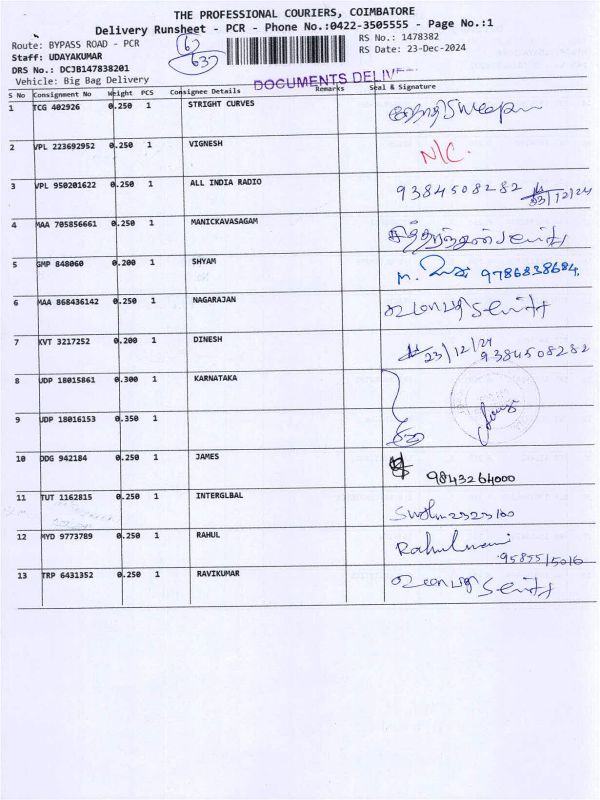 THE PROFESSIONAL COURIERS, COIMBATORE
Delivery Runsheet - PCR - Phone No.:0422-3505555 - Page No.:1
Route: BYPASS ROAD - PCR RS No.: 1478382
Staff: UDAYAKUMAR RS Date: 23-Dec-2024
DRS No.: DCJB147838201
Vehicle: Big Bag Delivery
DOCUMENTS
S No Consignment No Weight PCS Consignee Details Remarks Seal & Signature
1 TCG 402926 0.250 1 STRIGHT CURVES
2 VPL 223692952 0.250 1 VIGNESH N/C.
3 VPL 950201622 0.250 1 ALL INDIA RADIO 9384508282 23/12/24
4 MAA 705856661 0.250 1 MANICKAVASAGAM
5 GMP 848060 0.200 1 SHYAM 9786838684
6 MAA 868436142 0.250 1 NAGARAJAN
7 KVT 3217252 0.200 1 DINESH 23/12/24 9384508282
8 UDP 18015861 0.300 1 KARNATAKA
9 UDP 18016153 0.350 1
10 DDG 942184 0.250 1 JAMES 9843264000
11 TUT 1162815 0.250 1 INTERGLBAL
12 MYD 9773789 0.250 1 RAHUL
13 TRP 6431352 0.250 1 RAVIKUMAR